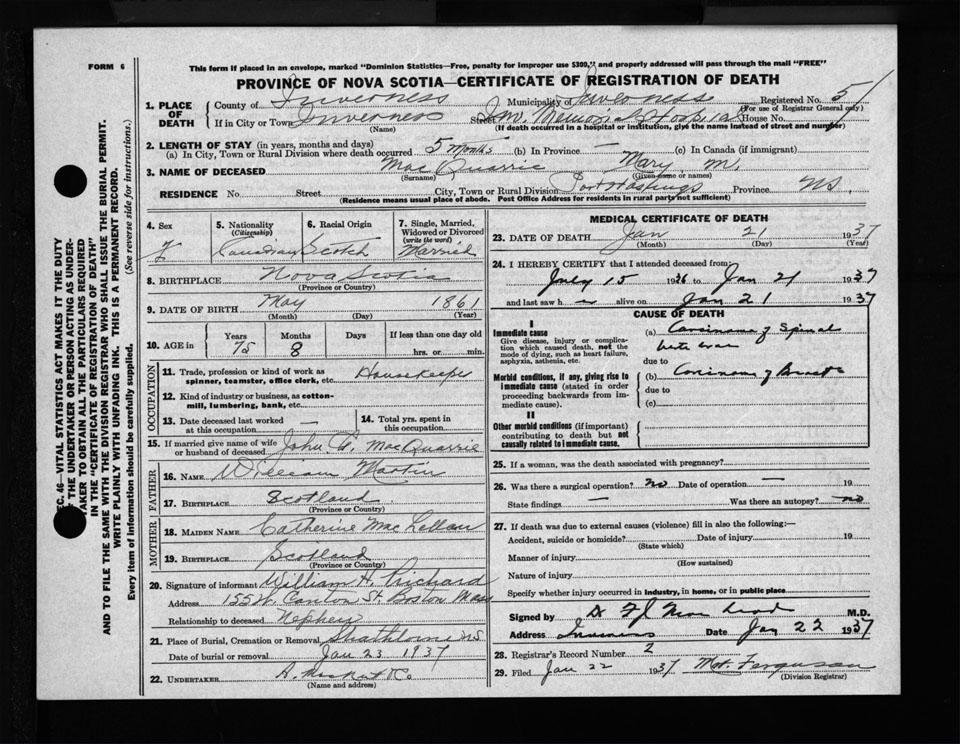 FORM 6
This form if placed in an envelope, marked "Dominion Statistics—Free, penalty for improper use $300," and properly addressed will pass through the mail "FREE"
PROVINCE OF NOVA SCOTIA—CERTIFICATE OF REGISTRATION OF DEATH
1. PLACE OF DEATH County of Inverness Municipality of Inverness Registered No. 51
(For use of Registrar General only)
If in City or Town Inverness Street Im. Memorial Hospital House No.
(Name) (If death occurred in a hospital or institution, give the name instead of street and number)
2. LENGTH OF STAY (in years, months and days)
(a) In City, Town or Rural Division where death occurred 5 months (b) In Province — (c) In Canada (if immigrant)
3. NAME OF DECEASED Mac Quarrie Mary M.
(Surname) (Given name or names)
RESIDENCE No. Street City, Town or Rural Division Port Hastings Province N.S.
(Residence means usual place of abode. Post Office Address for residents in rural parts not sufficient)
4. Sex F
5. Nationality (Citizenship) Canadian
6. Racial Origin Scotch
7. Single, Married, Widowed or Divorced (write the word) Married
8. BIRTHPLACE Nova Scotia
(Province or Country)
9. DATE OF BIRTH May 1861
(Month) (Day) (Year)
10. AGE in Years 75 Months 8 Days If less than one day old hrs. or min.
OCCUPATION
11. Trade, profession or kind of work as spinner, teamster, office clerk, etc. Housekeeper
12. Kind of industry or business, as cotton-mill, lumbering, bank, etc.
13. Date deceased last worked at this occupation —
14. Total yrs. spent in this occupation
15. If married give name of wife or husband of deceased John A. MacQuarrie
FATHER
16. NAME William Martin
17. BIRTHPLACE Scotland
(Province or Country)
MOTHER
18. MAIDEN NAME Catherine Mac Lellan
19. BIRTHPLACE Scotland
(Province or Country)
20. Signature of informant William H. Prichard
Address 155 W. Canton St. Boston Mass
Relationship to deceased Nephew
21. Place of Burial, Cremation or Removal Strathlorne N.S.
Date of burial or removal Jan 23 1937
22. UNDERTAKER A.
(Name and address)
MEDICAL CERTIFICATE OF DEATH
23. DATE OF DEATH Jan 21 1937
(Month) (Day) (Year)
24. I HEREBY CERTIFY that I attended deceased from:
July 15 1936 to Jan 21 1937
and last saw h er alive on Jan 21 1937
CAUSE OF DEATH
I
Immediate cause
Give disease, injury or complication which caused death, not the mode of dying, such as heart failure, asphyxia, asthenia, etc.
(a) Carcinoma of Spinal
due to
Morbid conditions, if any, giving rise to immediate cause (stated in order proceeding backwards from immediate cause).
(b) Carcinoma of Breast
due to
(c)
II
Other morbid conditions (if important) contributing to death but not causally related to immediate cause.
25. If a woman, was the death associated with pregnancy?
26. Was there a surgical operation? no Date of operation — 19
State findings — Was there an autopsy? no
27. If death was due to external causes (violence) fill in also the following:—
Accident, suicide or homicide? Date of injury 19
(State which)
Manner of injury
(How sustained)
Nature of injury
Specify whether injury occurred in industry, in home, or in public place
Signed by Dr M.D.
Address Inverness Date Jan 22 1937
28. Registrar's Record Number 2
29. Filed Jan 22 1937 Ferguson
(Division Registrar)
SEC. 46—VITAL STATISTICS ACT MAKES IT THE DUTY
OF THE UNDERTAKER OR PERSON ACTING AS UNDER-
TAKER TO OBTAIN ALL THE PARTICULARS REQUIRED
IN THE "CERTIFICATE OF REGISTRATION OF DEATH"
AND TO FILE THE SAME WITH THE DIVISION REGISTRAR WHO SHALL ISSUE THE BURIAL PERMIT.
WRITE PLAINLY WITH UNFADING INK. THIS IS A PERMANENT RECORD.
Every item of information should be carefully supplied. (See reverse side for instructions.)